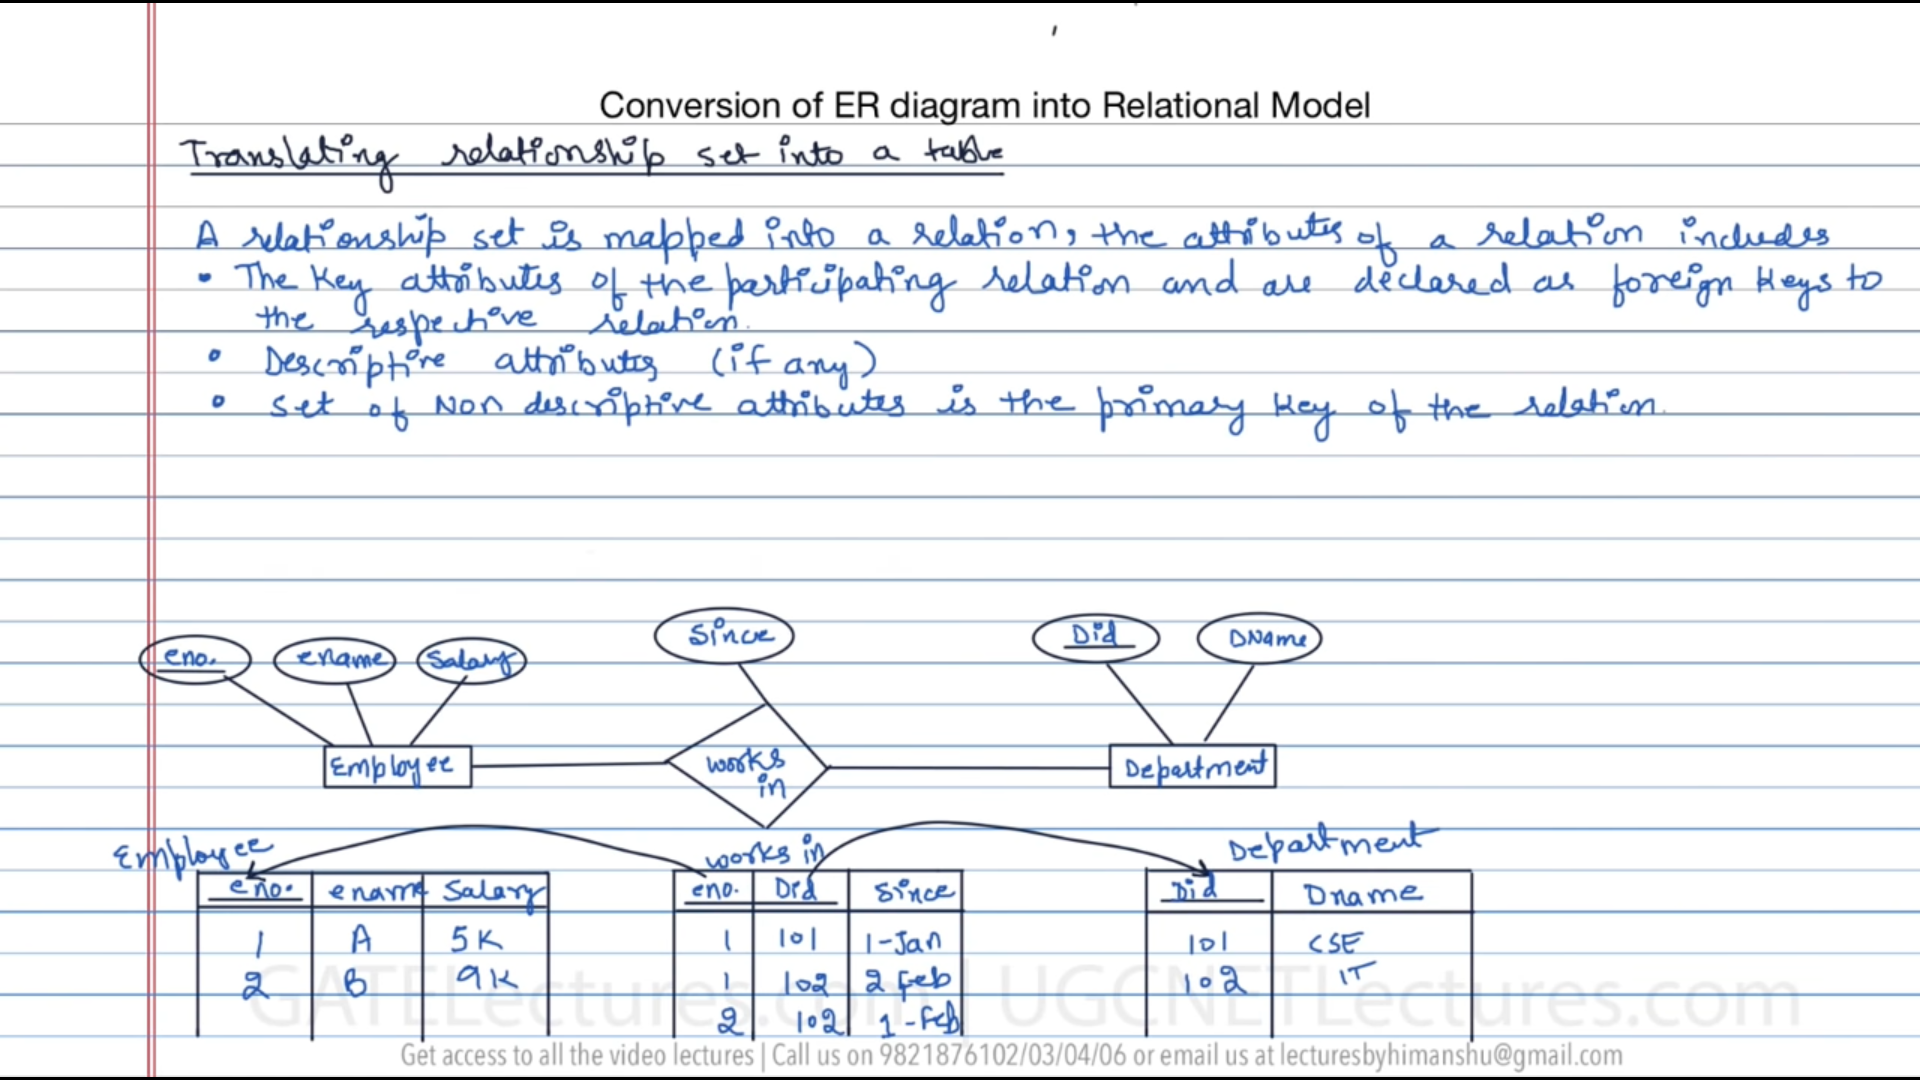 Conversion of ER diagram into Relational Model
Translating relationship set into a table
A relationship set is mapped into a relation, the attributes of a relation includes
• The Key attributes of the participating relation and are declared as foreign keys to
the respective relation.
• Descriptive attributes (if any)
• set of Non descriptive attributes is the primary key of the relation.
eno. ename Salary Since Did DName
Employee works in Department
Employee works in Department
eno. ename Salary eno. Did Since Did Dname
1 A 5K 1 101 1-Jan 101 CSE
2 B 9K 1 102 2 Feb 102 IT
2 102 1-Feb
GATELectures.com | UGCNETLectures.com
Get access to all the video lectures | Call us on 9821876102/03/04/06 or email us at lecturesbyhimanshu@gmail.com